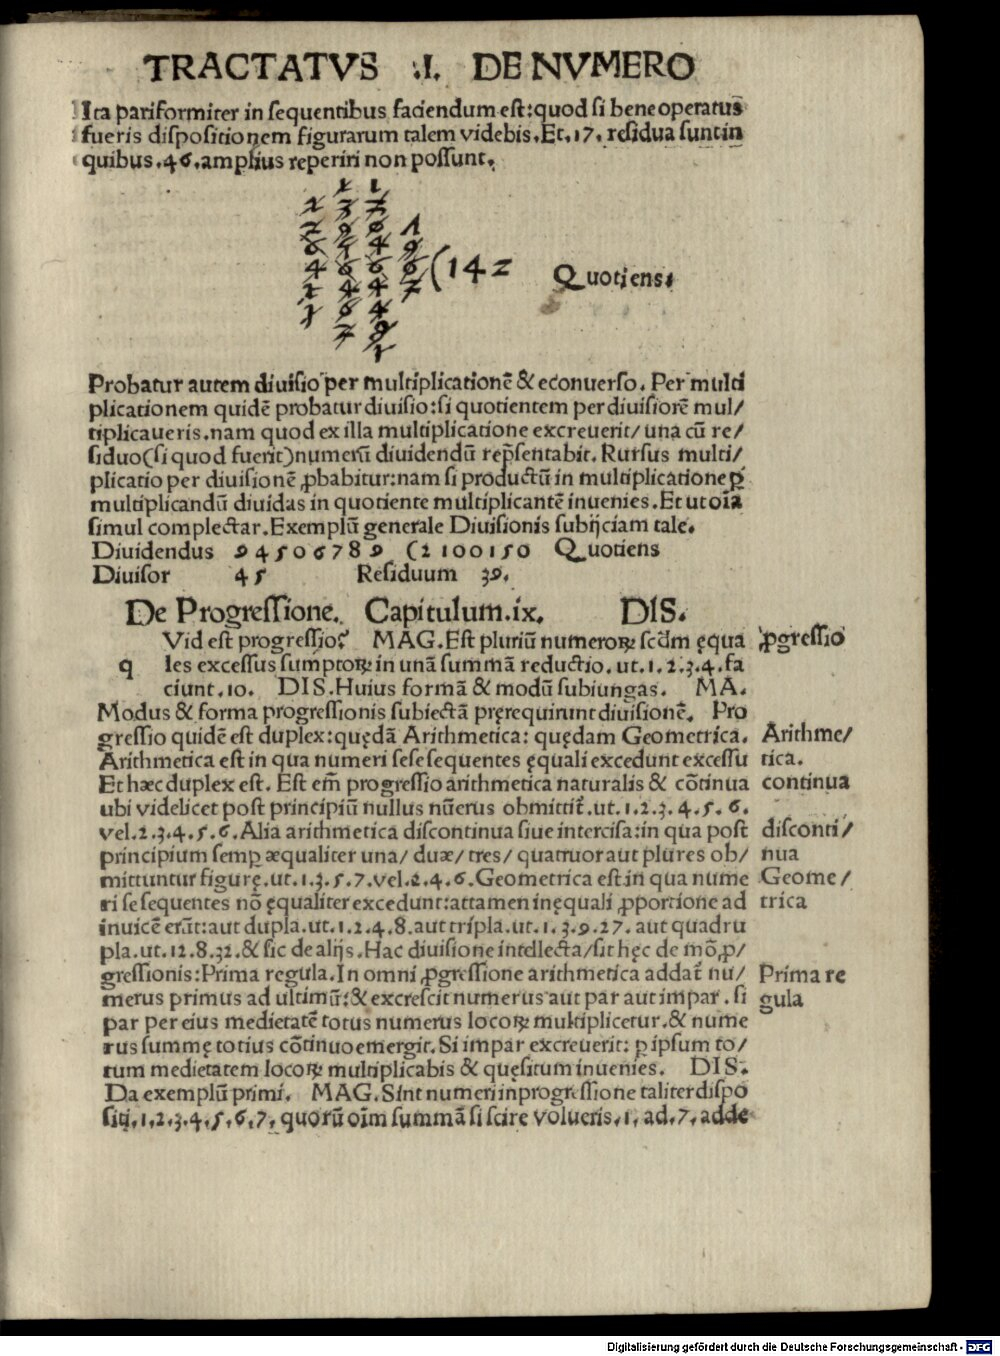 TRACTATVS .I. DE NVMERO
Ita pariformiter in sequentibus faciendum est:quod si bene operatus
fueris dispositionem figurarum talem videbis.Et.17.residua sunt in
quibus.46.amplius reperiri non possunt.
(142 Quotiens.
Probatur autem diuisio per multiplicationē & econuerso. Per multi
plicationem quidē probatur diuisio:si quotientem per diuisiorē mul/
tiplicaueris.nam quod ex illa multiplicatione excreuerit/ una cū re/
siduo(si quod fuerit)numerū diuidendū rep̄sentabit. Rursus multi/
plicatio per diuisionē ꝓbabitur:nam si productū in multiplicatione ꝑ
multiplicandū diuidas in quotiente multiplicantē inuenies. Et ut oīa
simul complectar.Exemplū generale Diuisionis subijciam tale.
Diuidendus 94506789 (2100150 Quotiens
Diuisor 45 Residuum 39.
De Progressione. Capitulum.ix. DIS.
Vid est progressio? MAG.Est pluriū numeroꝝ scd̄m ęqua
ꝓgressio
q les excessus sumptoꝝ in unā summā reductio.ut.1.2.3.4.fa
ciunt.10. DIS.Huius formā & modū subiungas. MA.
Modus & forma progressionis subiectā pręrequirunt diuisionē. Pro
gressio quidē est duplex:quędā Arithmetica: quędam Geometrica.
Arithme/
Arithmetica est in qua numeri sese sequentes ęquali excedunt excessu
tica.
Et hæc duplex est. Est em̄ progressio arithmetica naturalis & cōtinua
continua
ubi videlicet post principiū nullus nūerus obmittit̄.ut.1.2.3.4.5.6.
vel.2.3.4.5.6.Alia arithmetica discontinua siue intercisa:in qua post
disconti/
principium semꝑ æqualiter una/ duæ/ tres/ quattuor aut plures ob/
nua
mittuntur figurę.ut.1.3.5.7.vel.2.4.6.Geometrica est in qua nume
Geome/
ri se sequentes nō ęqualiter excedunt:attamen in ęquali ꝓportione ad
trica
inuicē erāt:aut dupla.ut.1.2.4.8.aut tripla.ut.1.3.9.27.aut quadru
pla.ut.12.8.32.& sic de alijs. Hac diuisione intellecta/sit hęc de mō,ꝓ/
gressionis:Prima regula.In omni ꝓgressione arithmetica addat̄ nu/
Prima re
merus primus ad ultimū:& excrescit numerus aut par aut impar. si
gula
par per eius medietatē totus numerus locoꝝ multiplicetur.& nume
rus summę totius cōtinuo emergit.Si impar excreuerit: ꝑ ipsum to/
tum medietatem locoꝝ multiplicabis & quęsitum inuenies. DIS.
Da exemplū primi. MAG.Sint numeri in progressione taliter dispo
siti.1.2.3.4.5.6.7.quorū oīm summā si scire volueris.1.ad.7.adde
Digitalisierung gefördert durch die Deutsche Forschungsgemeinschaft - DFG